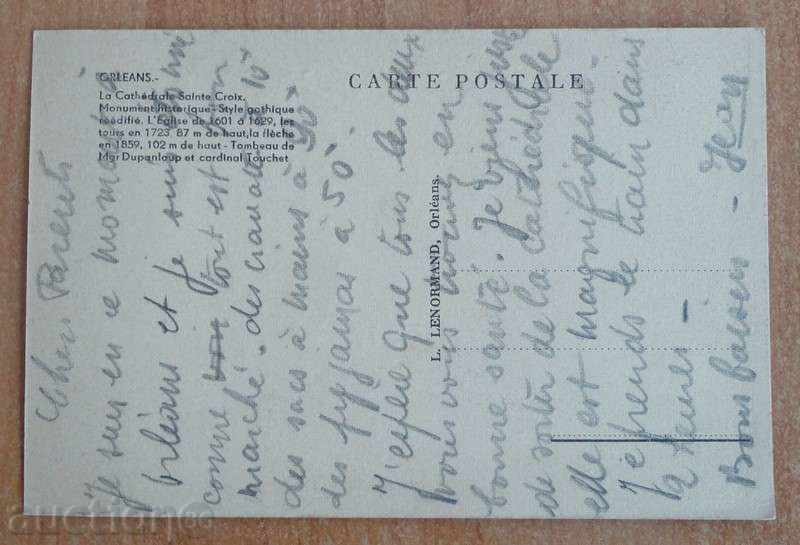 ORLEANS.-
La Cathédrale Sainte Croix.
Monument historique - Style gothique
réédifié. L'Eglise de 1601 à 1829, les
tours en 1723, 87 m de haut, la flèche
en 1859, 102 m de haut - Tombeau de
Mgr Dupanloup et cardinal Touchet
CARTE POSTALE
L. LENORMAND, Orléans.
Chers Parents
Je suis en ce moment à
Orléans et je suis
comme tout est bon
marché. des cravates à 10
des sacs à mains à 90
des pyjamas à 50
J'espère que tous les deux
vous vous trouvez en
bonne santé. Je viens
de sortir de la Cathédrale
elle est magnifique.
Je prends le train dans
2 heures -
Bons baisers - Jean
auction